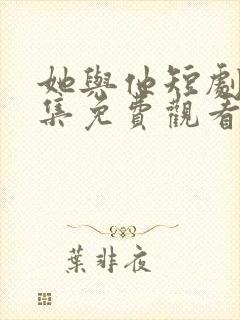 她與他短劇
集免費觀看
葉非夜